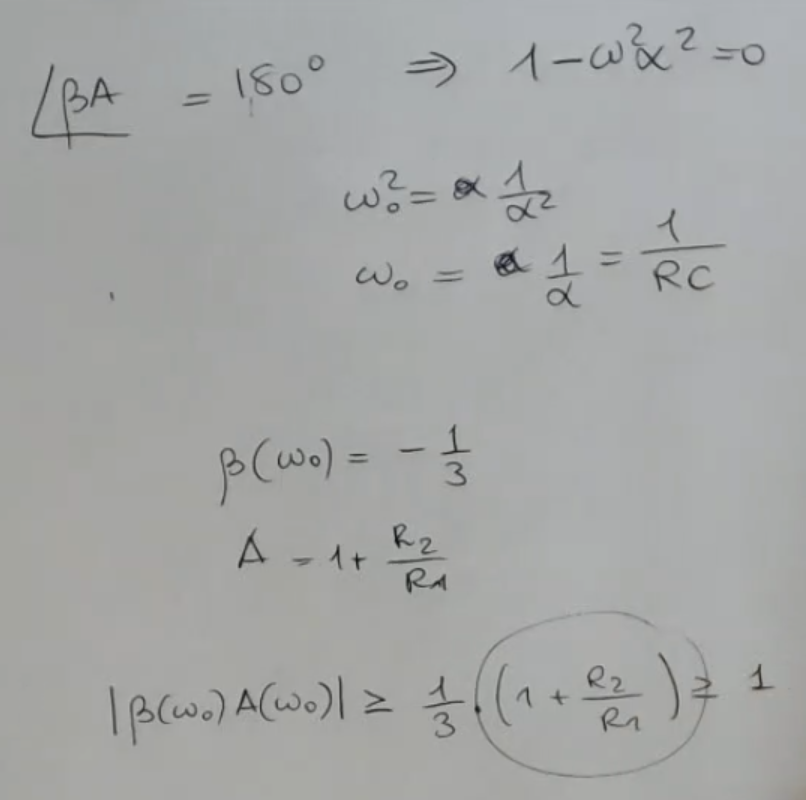 ∠βA = 180° ⇒ 1 − ω²α² = 0
ω₀² = 1/α²
ω₀ = 1/α = 1/RC
β(ω₀) = − 1/3
A = 1 + R₂/R₁
|β(ω₀) A(ω₀)| ≥ 1/3 · (1 + R₂/R₁) ≥ 1